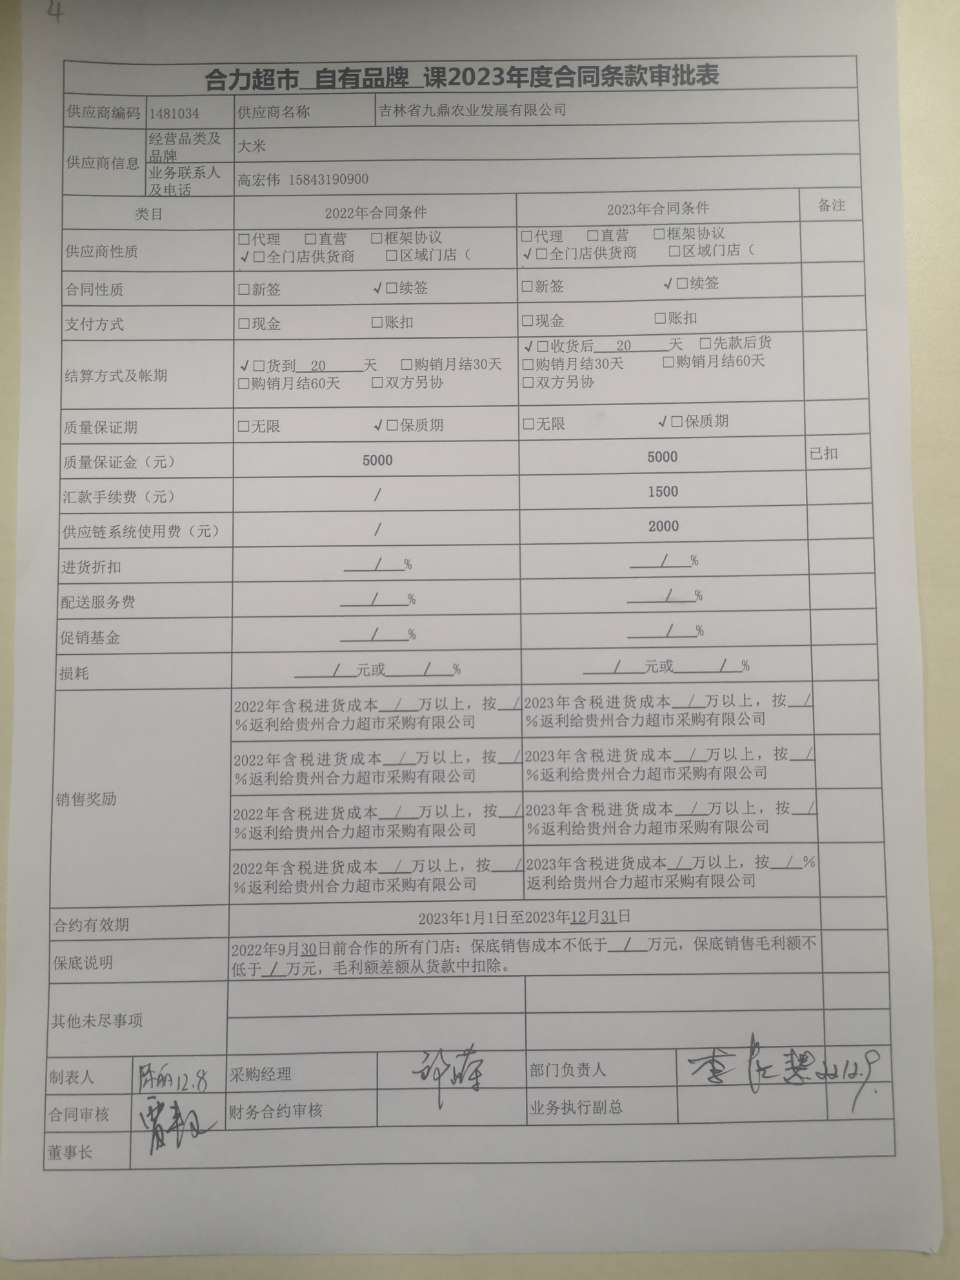 4
合力超市 自有品牌 课2023年度合同条款审批表
供应商编码 1481034 供应商名称 吉林省九鼎农业发展有限公司
供应商信息 经营品类及品牌 大米
业务联系人及电话 高宏伟 15843190900
类目 2022年合同条件 2023年合同条件 备注
供应商性质 □代理 □直营 □框架协议 □代理 □直营 □框架协议
√□全门店供货商 □区域门店( √□全门店供货商 □区域门店(
合同性质 □新签 √□续签 □新签 √□续签
支付方式 □现金 □账扣 □现金 □账扣
结算方式及帐期 √□货到 20 天 □购销月结30天 √□收货后 20 天 □先款后货
□购销月结60天 □双方另协 □购销月结30天 □购销月结60天
□双方另协
质量保证期 □无限 √□保质期 □无限 √□保质期
质量保证金(元) 5000 5000 已扣
汇款手续费(元) / 1500
供应链系统使用费(元) / 2000
进货折扣 / % / %
配送服务费 / % / %
促销基金 / % / %
损耗 / 元或 / % / 元或 / %
销售奖励 2022年含税进货成本 / 万以上，按 / 2023年含税进货成本 / 万以上，按 /
%返利给贵州合力超市采购有限公司 %返利给贵州合力超市采购有限公司
2022年含税进货成本 / 万以上，按 / 2023年含税进货成本 / 万以上，按 /
%返利给贵州合力超市采购有限公司 %返利给贵州合力超市采购有限公司
2022年含税进货成本 / 万以上，按 / 2023年含税进货成本 / 万以上，按 /
%返利给贵州合力超市采购有限公司 %返利给贵州合力超市采购有限公司
2022年含税进货成本 / 万以上，按 / 2023年含税进货成本 / 万以上，按 / %
%返利给贵州合力超市采购有限公司 返利给贵州合力超市采购有限公司
合约有效期 2023年1月1日至2023年12月31日
保底说明 2022年9月30日前合作的所有门店：保底销售成本不低于 / 万元，保底销售毛利额不
低于 / 万元，毛利额差额从货款中扣除。
其他未尽事项
制表人 12.8 采购经理 部门负责人 22.12.9
合同审核 财务合约审核 业务执行副总
董事长